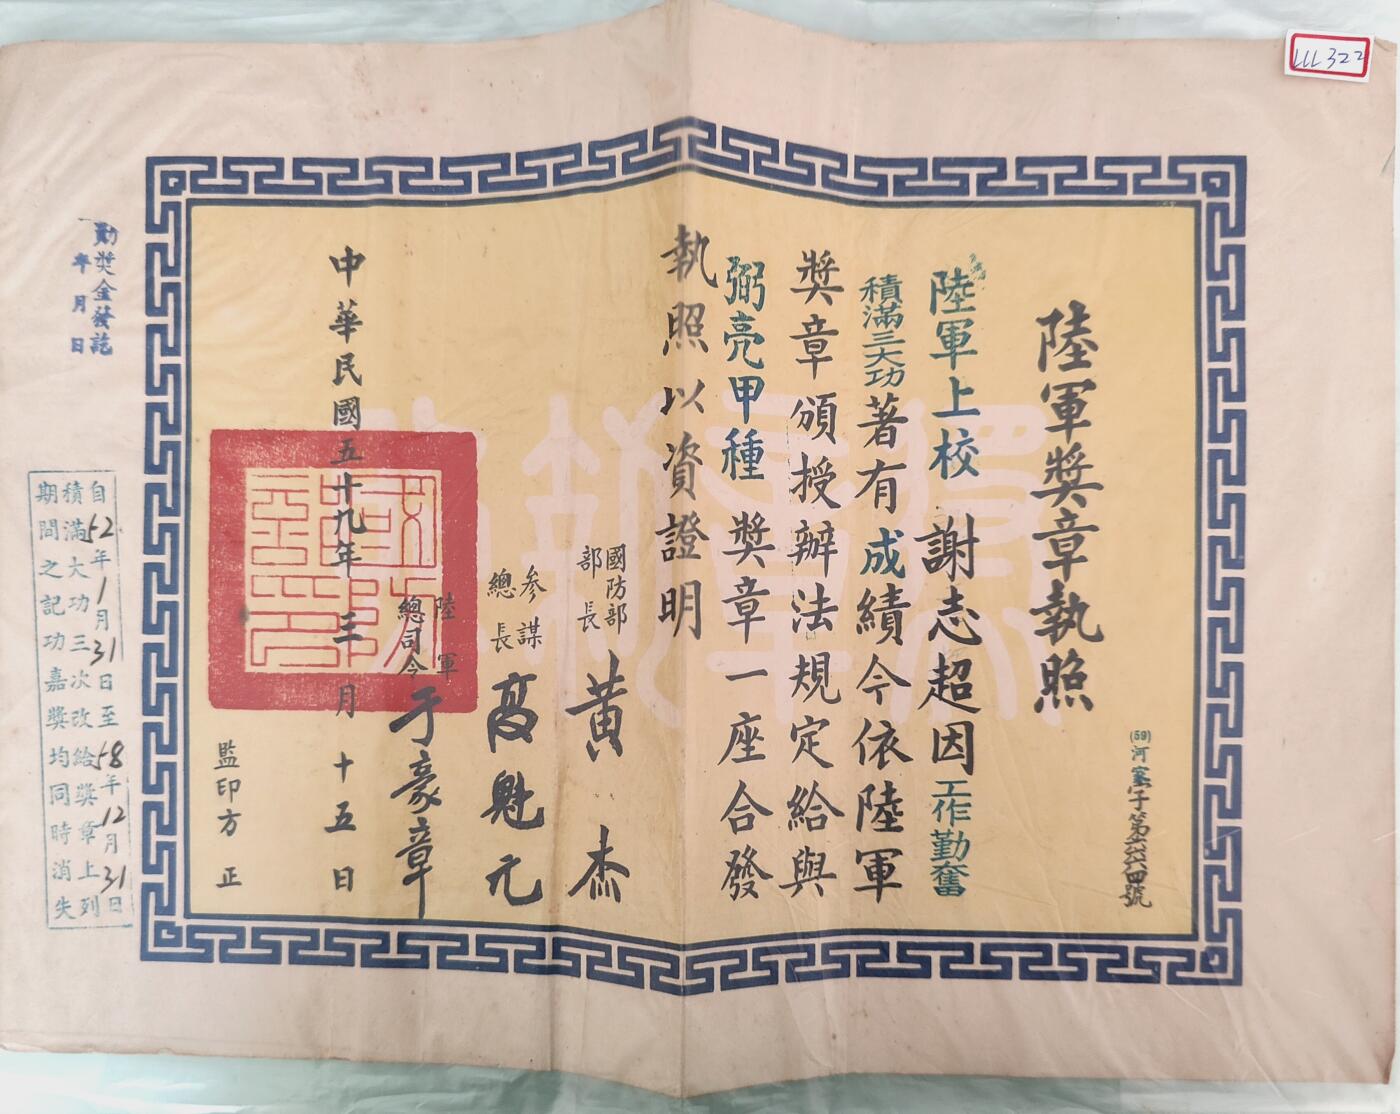 LLL322
陸軍獎章執照
(59)河寧字第六六四號
陸軍上校 謝志超因工作勤奮
積滿三大功著有成績今依陸軍
獎章頒授辦法規定給與
弼亮甲種獎章一座合發
執照以資證明
國防部
部長 黃杰
參謀
總長 高魁元
陸軍
總司令 于豪章
中華民國五十九年三月十五日
監印方正
勳獎金發訖
年月日
自52年1月31日至58年12月31日
積滿大功三次改給獎章上列
期間之記功嘉獎均同時消失